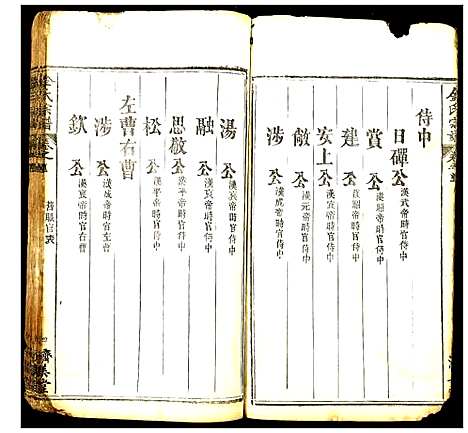 侍中
日磾公 漢武帝時官侍中
賞公 漢昭帝時官侍中
建公 漢昭帝時官侍中
安上公 漢宣帝時官侍中
敞公 漢元帝時官侍中
涉公 漢成帝時官侍中
湯公 漢哀帝時官侍中
融公 漢哀帝時官侍中
思敬公 漢平帝時官侍中
松公 漢平帝時官侍中
左曹右曹
涉公 漢成帝時官左曹
欽公 漢哀帝時官右曹